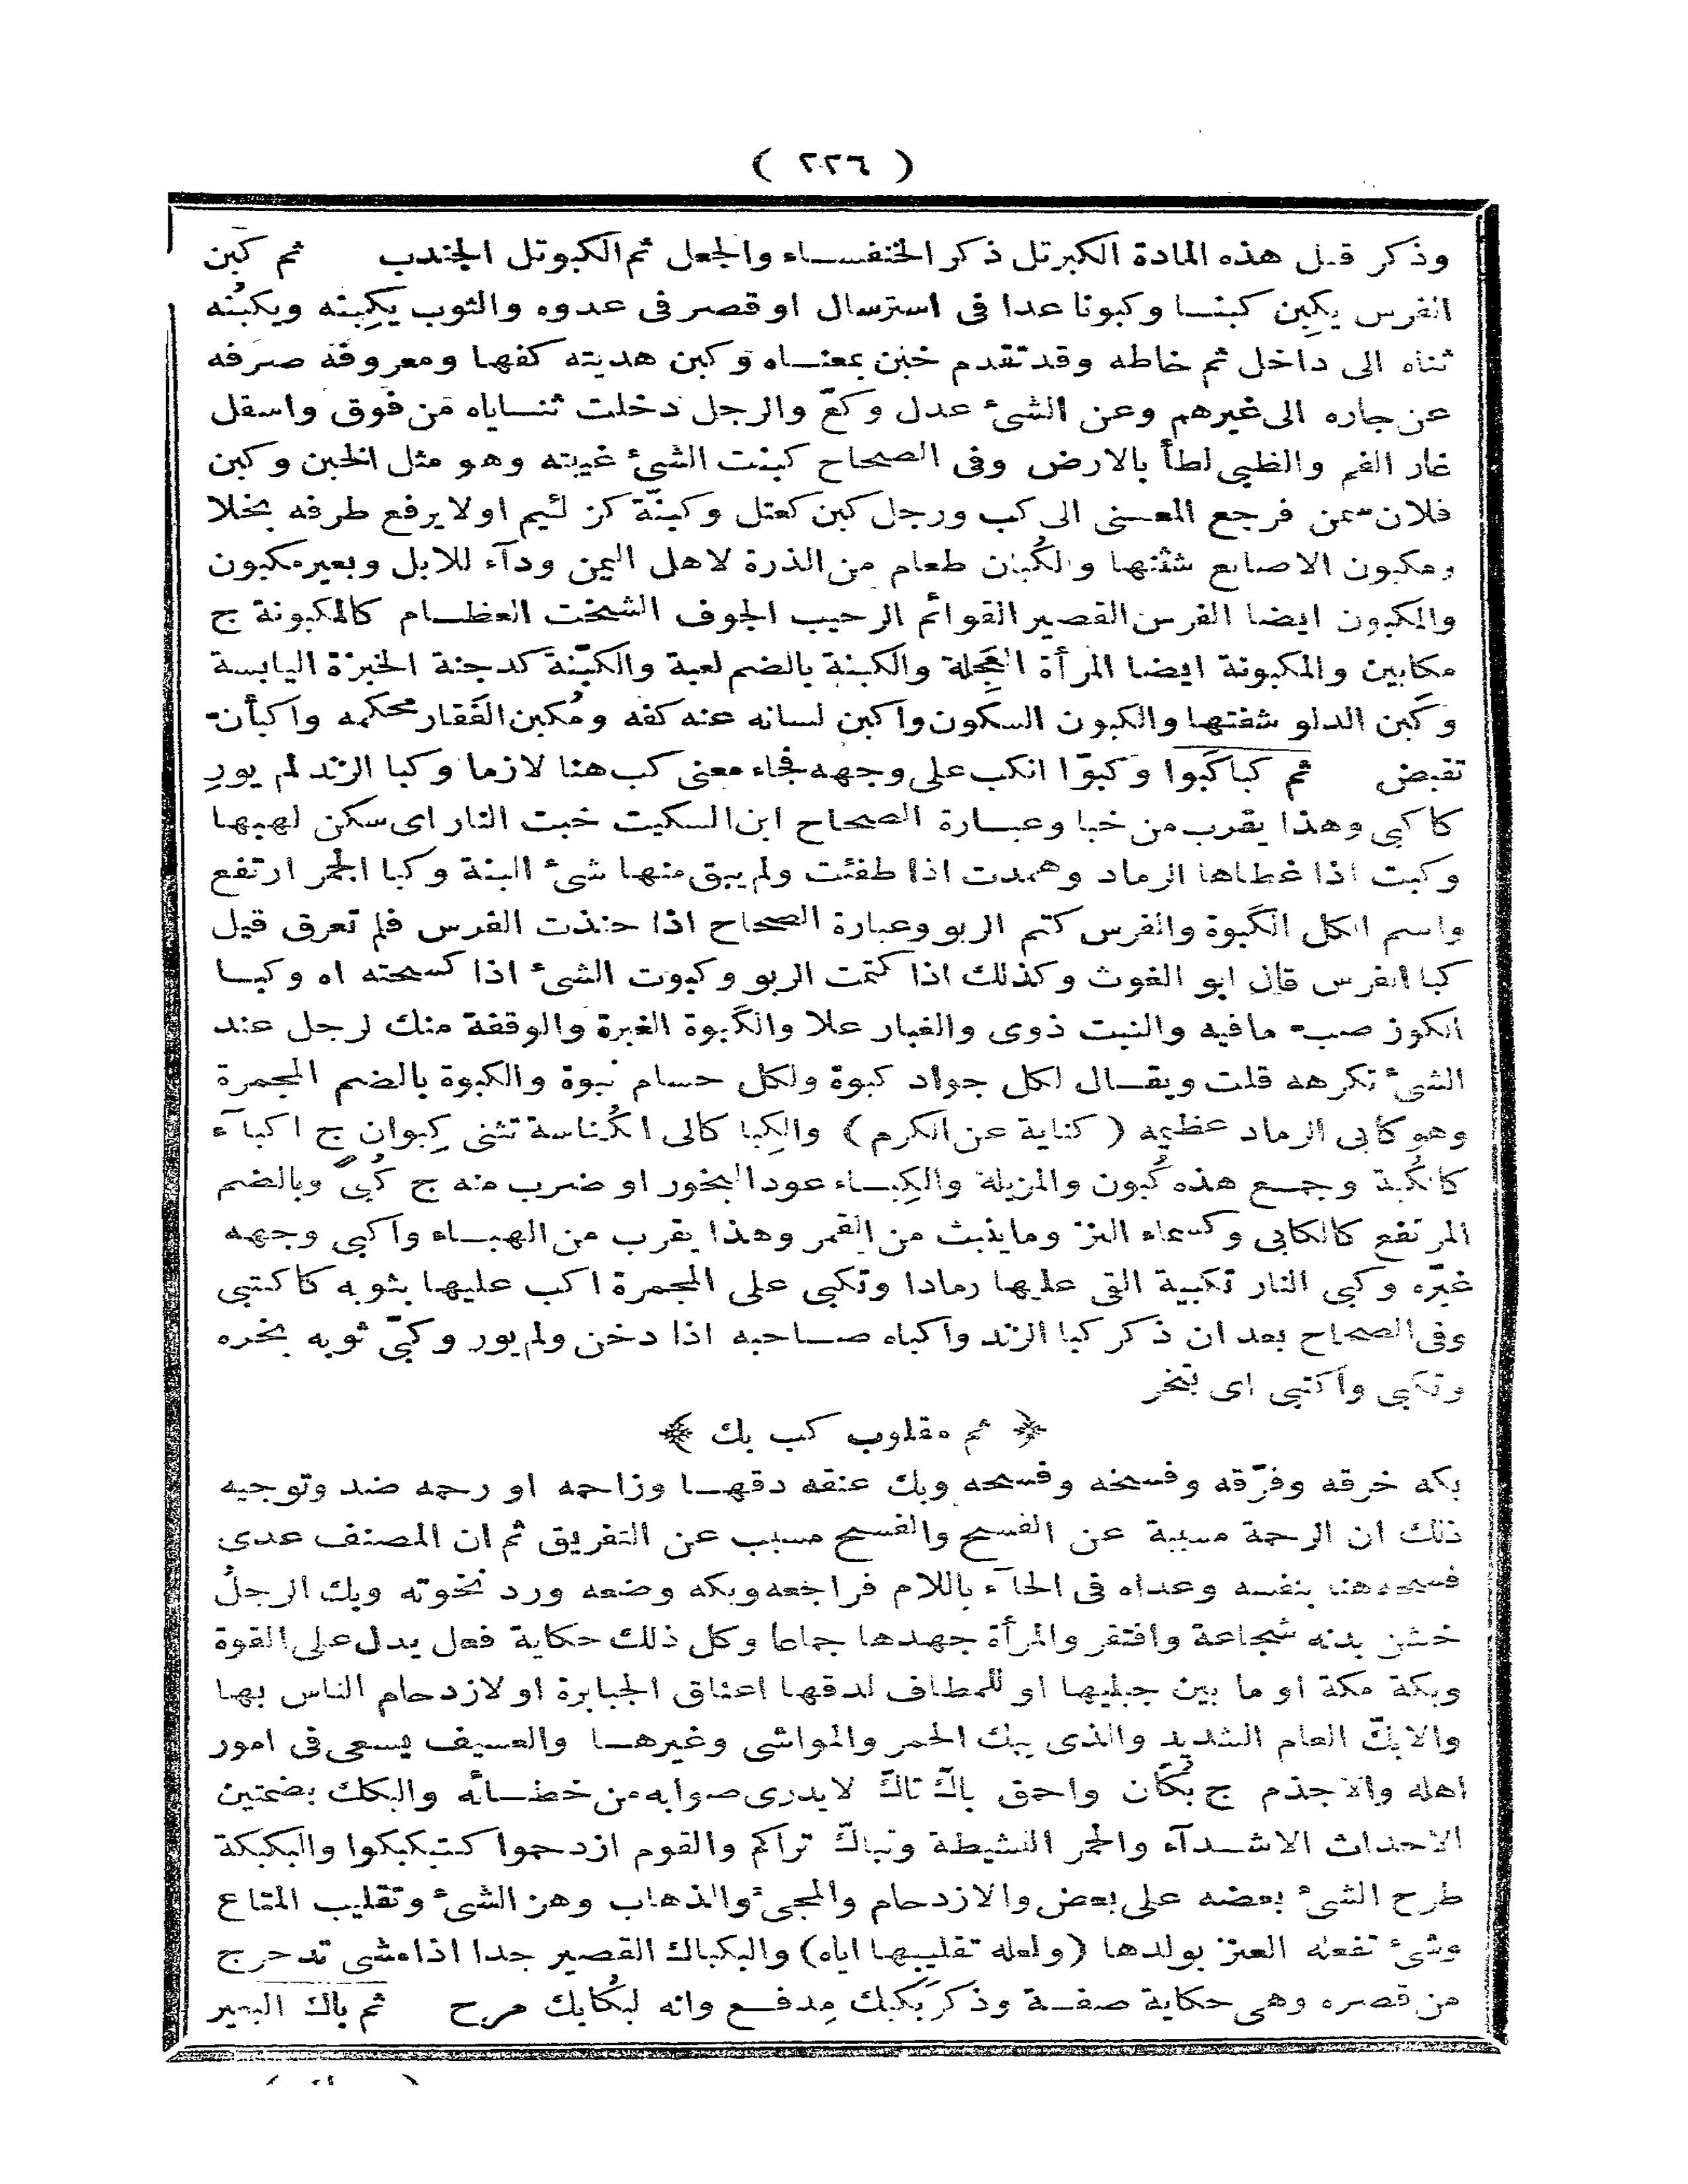 ( ٢٢٦ )
وذكر قبل هذه المادة الكبرتل ذكر الخنفساء والجعل ثم الكبوتل الجندب ثم كبن
الفرس يكبِن كبنا وكبونا عدا فى استرسال او قصر فى عدوه والثوب يكبِنه ويكبُنه
ثناه الى داخل ثم خاطه وقد تقدم خبن بمعناه وكبن هديته كفها ومعروفه صرفه
عن جاره الى غيرهم وعن الشئ عدل وكعّ والرجل دخلت ثناياه من فوق واسفل
غار الفم والظبى لطأ بالارض وفى الصحاح كبنت الشئ غيبته وهو مثل الخبن وكبن
فلان سمن فرجع المعنى الى كب ورجل كبن كعتل وكبنّة كز لئيم او لا يرفع طرفه بخلا
ومكبون الاصابع شثنها والكُبان طعام من الذرة لاهل اليمن ودآء للابل وبعير مكبون
والمكبون ايضا الفرس القصير القوائم الرحيب الجوف الشخت العظام كالمكبونة ج
مكابين والمكبونة ايضا المرأة العَجِلة والكبنة بالضم لعبة والكبنّة كدجنة الخبزة اليابسة
وكَبن الدلو شفتها والكبون السكون واكبن لسانه عنه كفه ومُكبن الفَقار محكمه واكبأن
تقبض ثم كبا كَبوا وكبوّا انكب على وجهه فجاء معنى كب هنا لازما وكبا الزند لم يورِ
كاكبى وهذا يقرب من خبا وعبارة الصحاح ابن السكيت خبت النار اى سكن لهبها
وكبت اذا غطاها الرماد وهمدت اذا طفئت ولم يبق منها شئ البتة وكبا الجمر ارتفع
واسم الكل الكَبوة والفرس كتم الربو وعبارة الصحاح اذا حنذت الفرس فلم تعرق قيل
كبا الفرس قال ابو الغوث وكذلك اذا كتمت الربو وكبوت الشئ اذا كسحته اه وكبا
الكوز صب ما فيه والنبت ذوى والغبار علا والكَبوة الغبرة والوقفة منك لرجل عند
الشئ تكرهه قلت ويقال لكل جواد كبوة ولكل حسام نبوة والكبوة بالضم المجمرة
وهو كابى الرماد عظيمه ( كناية عن الكرم ) والكِبا كالى الكُناسة تثنى كِبوان ج اكبآء
كالكُبة وجمع هذه كُبون والمزبلة والكِباء عود البخور او ضرب منه ج كُبىً وبالضم
المرتفع كالكابى وكسماء النز وما ينبث من القمر وهذا يقرب من الهباء واكبى وجهه
غبّره وكبى النار تكبية القى عليها رمادا وتكبى على المجمرة اكب عليها بثوبه كاكتبى
وفى الصحاح بعد ان ذكر كبا الزند واكباه صاحبه اذا دخن ولم يور وكبّى ثوبه بخره
وتكبى واكتبى اى تبخر
﴿ ثم مقلوب كب بك ﴾
بكه خرقه وفرّقه وفسخه وفسحه وبك عنقه دقها وزاحمه او رحمه ضد وتوجيه
ذلك ان الرحمة مسببة عن الفسح والفسح مسبب عن التفريق ثم ان المصنف عدى
فسحه هنا بنفسه وعداه فى الحآء باللام فراجعه وبكه وضعه ورد نخوته وبك الرجلُ
خشن بدنه شجاعة وافتقر والمرأة جهدها جماعا وكل ذلك حكاية فعل يدل على القوة
وبكة مكة او ما بين جبليها او للمطاف لدقها اعناق الجبابرة او لازدحام الناس بها
والابكّ العام الشديد والذى يبك الحمر والمواشى وغيرها والعسيف يسعى فى امور
اهله والاجذم ج بُكّان واحمق باكّ تاكّ لا يدرى صوابه من خطائه والبكك بضمتين
الاحداث الاشدآء والحمر النشيطة وتباكّ تراكم والقوم ازدحموا كتبكبكوا والبكبكة
طرح الشئ بعضه على بعض والازدحام والمجئ والذهاب وهز الشئ وتقليب المتاع
وشئ تفعله العنز بولدها ( ولعله تقليبها اياه ) والبكباك القصير جدا اذا مشى تدحرج
من قصره وهى حكاية صفة وذكر بَكبك مِدفع وانه لبُكابك مرح ثم باك البعير